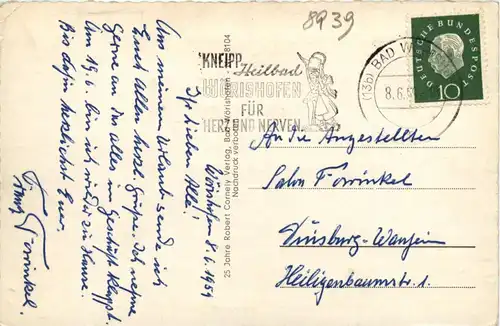 8939
DEUTSCHE BUNDESPOST
10
(13b) BAD W
8.6.5
KNEIPP
Heilbad
WÖRISHOFEN
FÜR
HERZ UND NERVEN
25 Jahre Robert Cornely Verlag, Bad Wörishofen - 8104
Nachdruck verboten
Wörishofen 8.6.1959
Ihr lieben Alle!
Aus meinem Urlaub sende ich
Euch allen herzl. Grüße. Ich nehme
gerne an das alles im Geschäft klappt.
Am 19.6. bin ich wieder zu Hause.
Bis dahin herzlichst Euer
Franz Forvinkel.
An die Angestellten
Salon Forvinkel
Duisburg-Wanheim
Heiligenbaumstr. 1